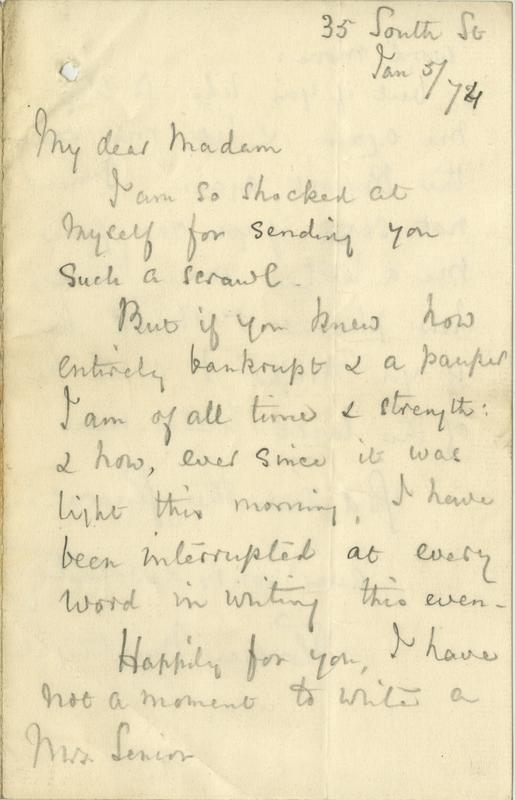 35 South St
Jan 5/74
My dear Madam
I am so shocked at
myself for sending you
such a scrawl.
But if you knew how
entirely bankrupt & a pauper
I am of all time & strength:
& how, ever since it was
light this morning, I have
been interrupted at every
word in writing this even-
Happily for you, I have
not a moment to write a
Mrs. Senior